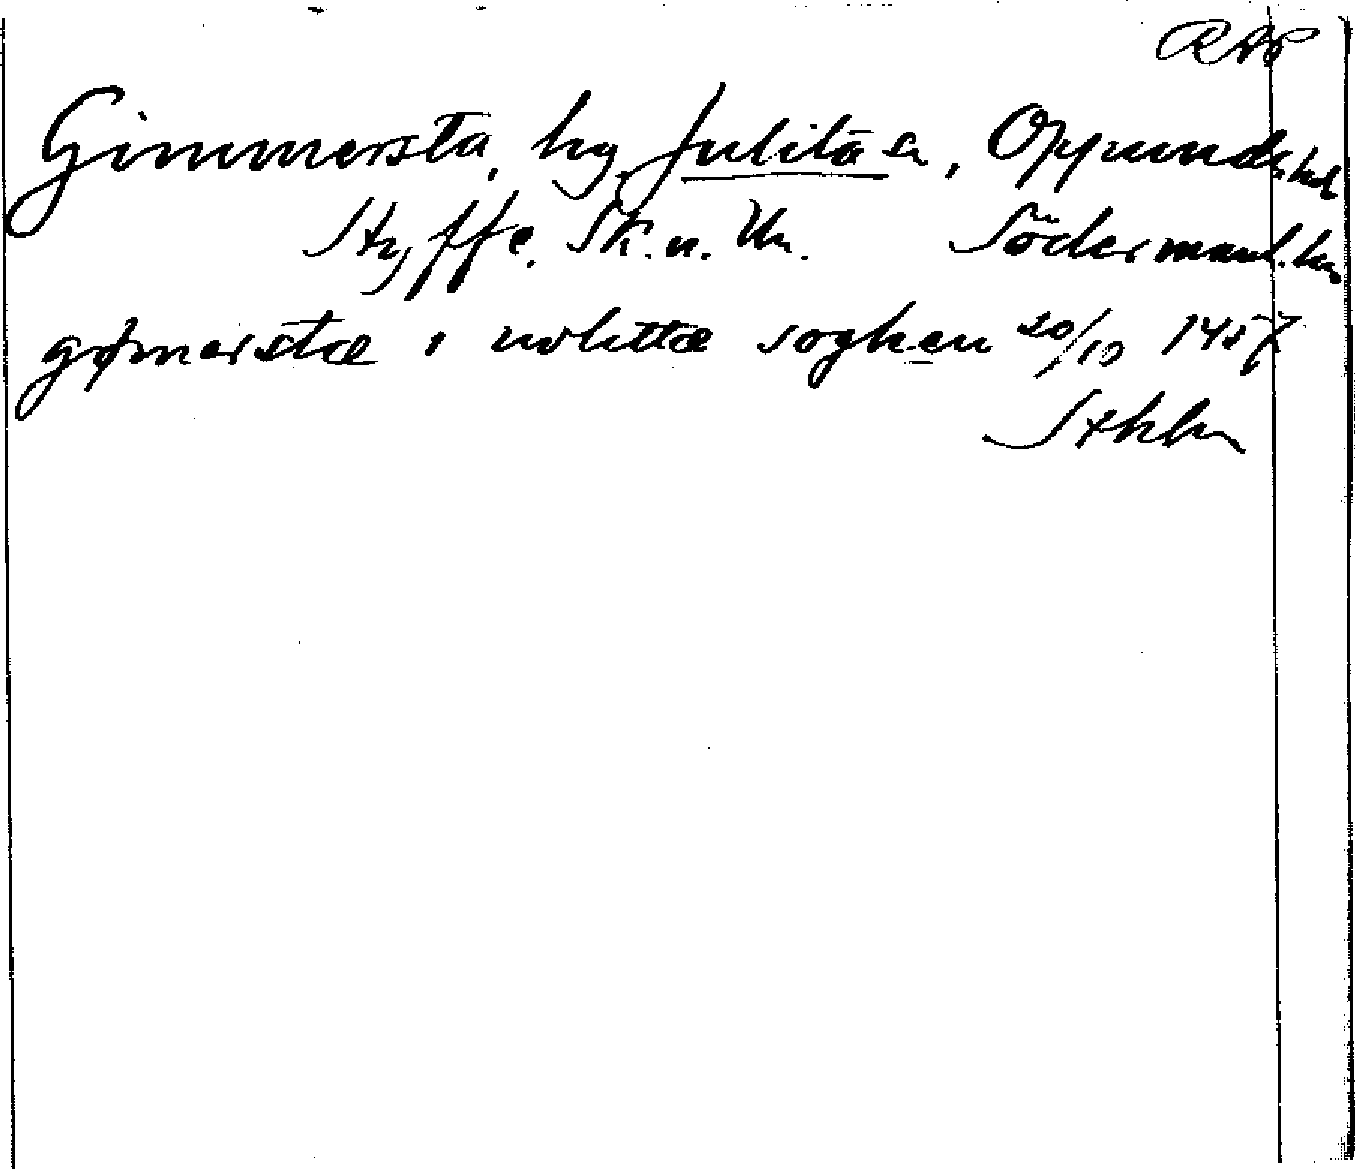 RAP
Gimmersta, by, Julita sn, Oppunda hd
Styffe, Sk. u. Un. Södermanl. län
gømerstæ i wlittæ soghen 20/10 1457
Sthlm